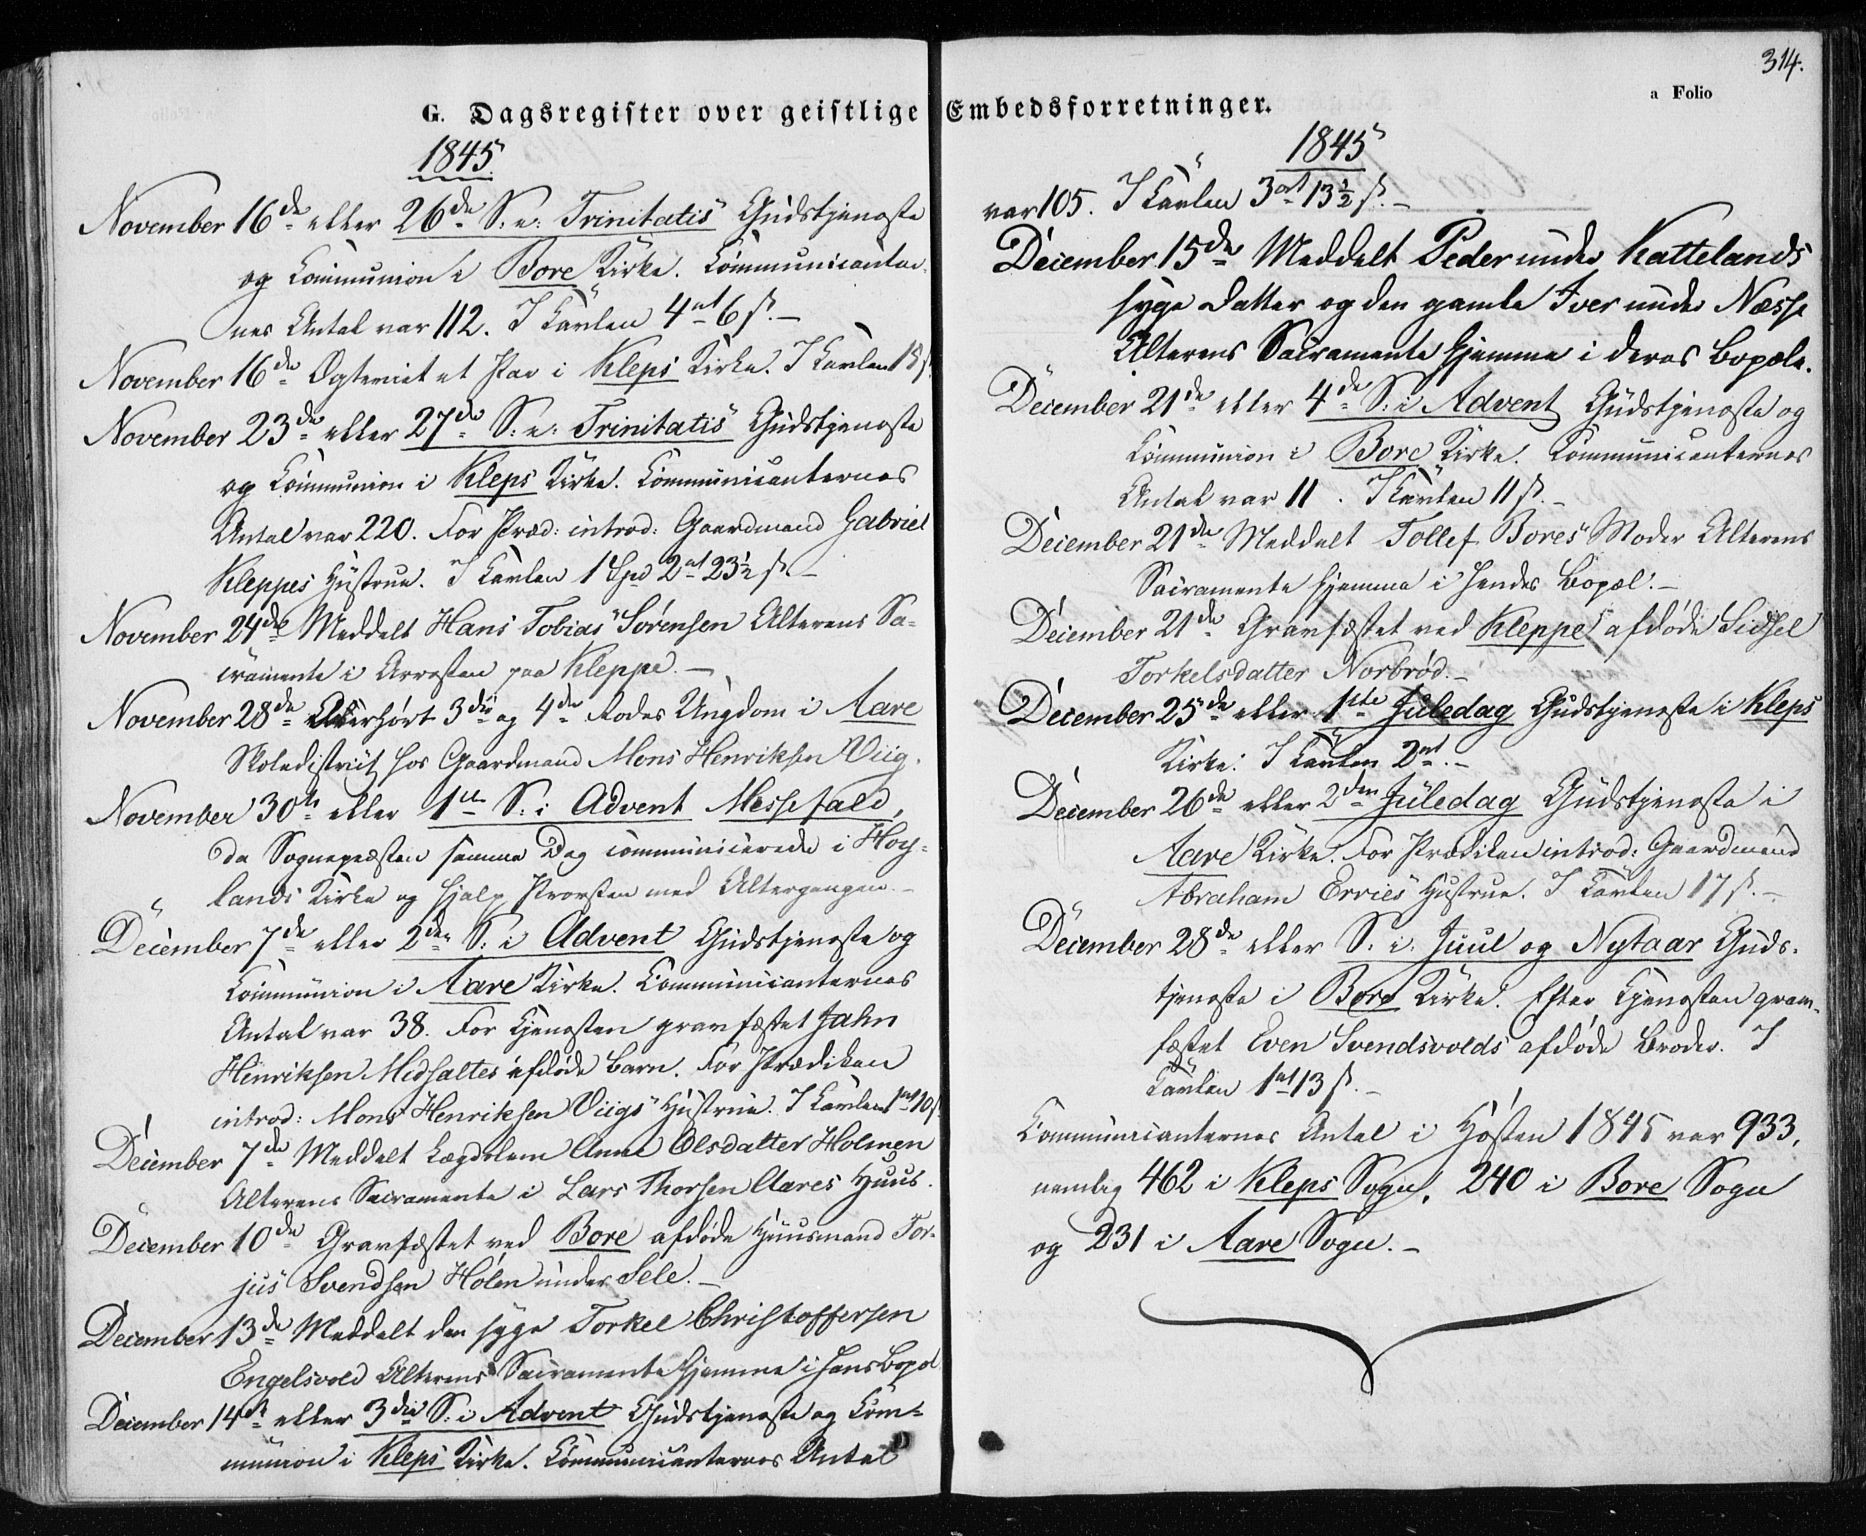 G. Dagsregister over geistlige Embedsforretninger.
314.
a Folio
1845
November 16de eller 26de S: e: Trinitatis Gudstjeneste
og Communion i Bore Kirke. Communicanter-
nes Antal var 112. I Tavlen 4 ort 6 s. –
November 16de Ogteviet et Par i Kleps Kirke. I Tavlen 18 s.
November 23de eller 27de S: e: Trinitatis Gudstjeneste
og Communion i Kleps Kirke. Communicanternes
Antal var 220. For Præd: introd: Gaardmand Gabriel
Kleppes Hustrue. I Tavlen 1 Spd 2 ort 23½ s. –
November 24de Meddelt Hans Tobias Sørensen Alterens Sa-
cramente i Arresten paa Kleppe. –
November 28de Overhørt 3die og 4de Rodes Ungdom i Aare
Skoledistrict hos Gaardmand Mons Henriksen Viig.
November 30te eller 1ste S: i Advent Messefald,
da Sognepræsten samme Dag communicerede i Høy-
lands Kirke og hjalp Provsten med Altergangen. –
December 7de eller 2den S: i Advent Gudstjeneste og
Communion i Aare Kirke. Communicanternes
Antal var 38. For Tjenesten gravfæstet Jahn
Henriksen Midsaltes afdøde Barn. For Prædiken
introd: Mons Henriksen Viigs Hustrue. I Tavlen 1 ort 10 s.
December 7de Meddelt Lægdslem Anne Olsdatter Holmen
Alterens Sacramente i Lars Thorsen Aares Huus.
December 10de Gravfæstet ved Bore afdøde Huusmand Tor-
jus Svendsen Hølen under Sele. –
December 13de Meddelt den syge Torkel Christoffersen
Engelsvold Alterens Sacramente hjemme i hans Bopæl
December 14de eller 3die S: i Advent Gudstjeneste og Com-
munion i Kleps Kirke. Communicanternes Antal
1845
var 105. I Tavlen 3 ort 13½ s. –
December 15de Meddelt Peder under Kattelands
syge Datter og den gamle Iver under Næsse
Alterens Sacramente hjemme i deres Bopæle.
December 21de eller 4de S: i Advent Gudstjeneste og
Communion i Bore Kirke. Communicanternes
Antal var 11. I Tavlen 11 s. –
December 21de Meddelt Tollef Bores Moder Alterens
Sacramente hjemme i hendes Bopæl. –
December 21de Gravfæstet ved Kleppe afdøde Sidsel
Torkelsdatter Norbrød. –
December 25de eller 1ste Juledag Gudstjeneste i Kleps
Kirke. I Tavlen 2 ort. –
December 26de eller 2den Juledag Gudstjeneste i
Aare Kirke. For Prædiken introd: Gaardmand
Abraham Ervies Hustrue. I Tavlen 17 s. –
December 28de eller S. i. Juul og Nytaar Guds-
tjeneste i Bore Kirke. Efter Tjenesten grav-
fæstet Even Svendsvolds afdøde Broder. I
Tavlen 1 ort 13 s. –
Communicanternes Antal i Høsten 1845 var 933,
nemlig 462 i Kleps Sogn, 240 i Bore Sogn
og 231 i Aare Sogn. –